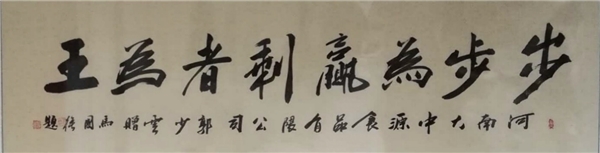 步步為贏剩者為王
河南大中源食品有限公司郭少雲贈馬國强題